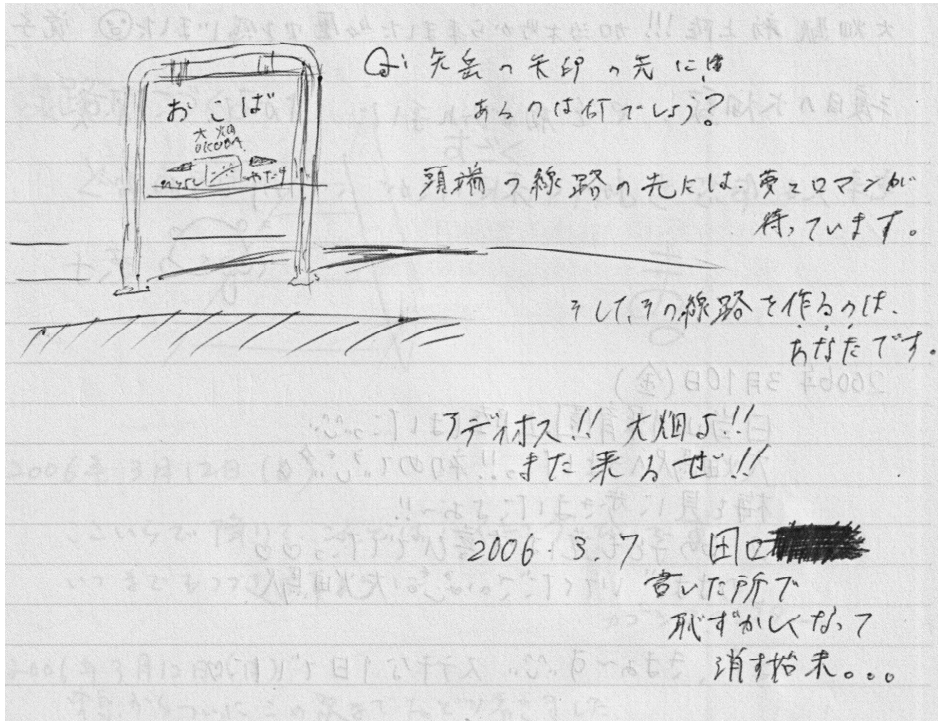 おこば
大畑
OKOBA
ひとよし やたけ
Q: 矢岳の矢印の先に
あるのは何でしょう?
頭端の線路の先には、夢とロマンが
待っています。
そして、その線路を作るのは、
あなたです。
アディオス!! 大畑よ!!
また来るぜ!!
2006.3.7 田口
書いた所で
恥ずかしくなって
消す始末。。。